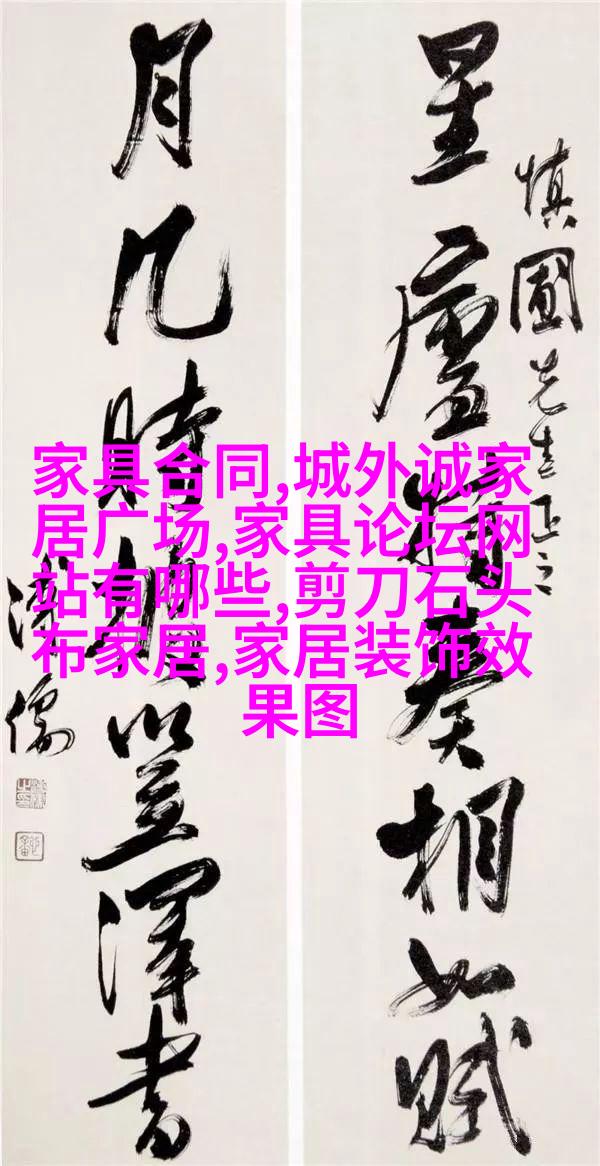 慎圃先生正之
星廬奏相如賦
月几時笠澤書
溥儒
家具合同,城外诚家
居广场,家具论坛网
站有哪些,剪刀石头
布家居,家居装饰效
果图